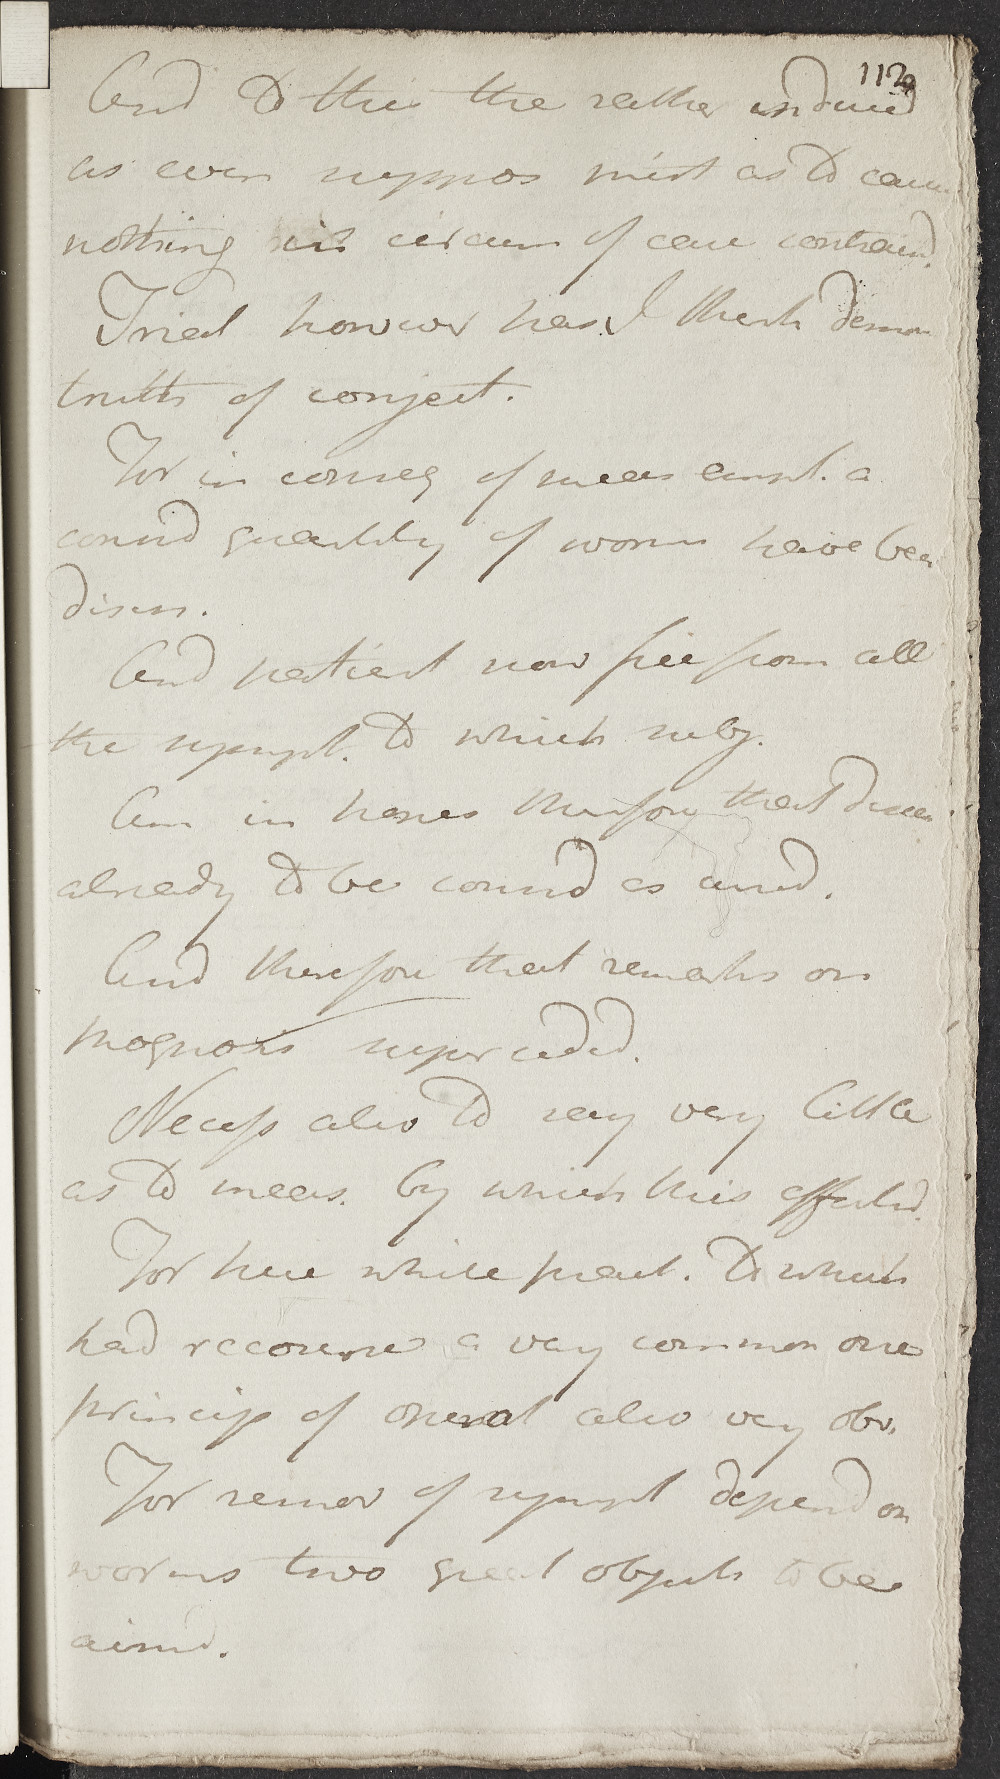 112
And to this the rather induced
as even suppos mist as to cause
nothing in circum of case contraind.
Trial however has I think demon
truth of conject.
For in conseq of meas empl. a
consid quantity of worms have been
disch.
And patient now free from all
the sympt. to which subj.
Am in hopes therefore that disease
already to be consid as cured.
And therefore that remarks on
prognosis superceded.
Necess also to say very little
as to meas. by which this effected.
For here while pract. to which
had recourse a very common one
princip of operat also very obv.
For remov of sympt depend on
worms two great objects to be
aimd.